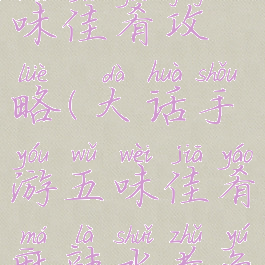 味佳肴攻
lüè dà huà shǒu
略(大话手
yóu wǔ wèi jiā yáo
游五味佳肴
má là shuǐ zhǔ yú
麻辣水煮鱼